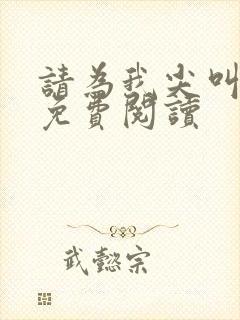 請為我尖叫
免費閱讀
武懿宗